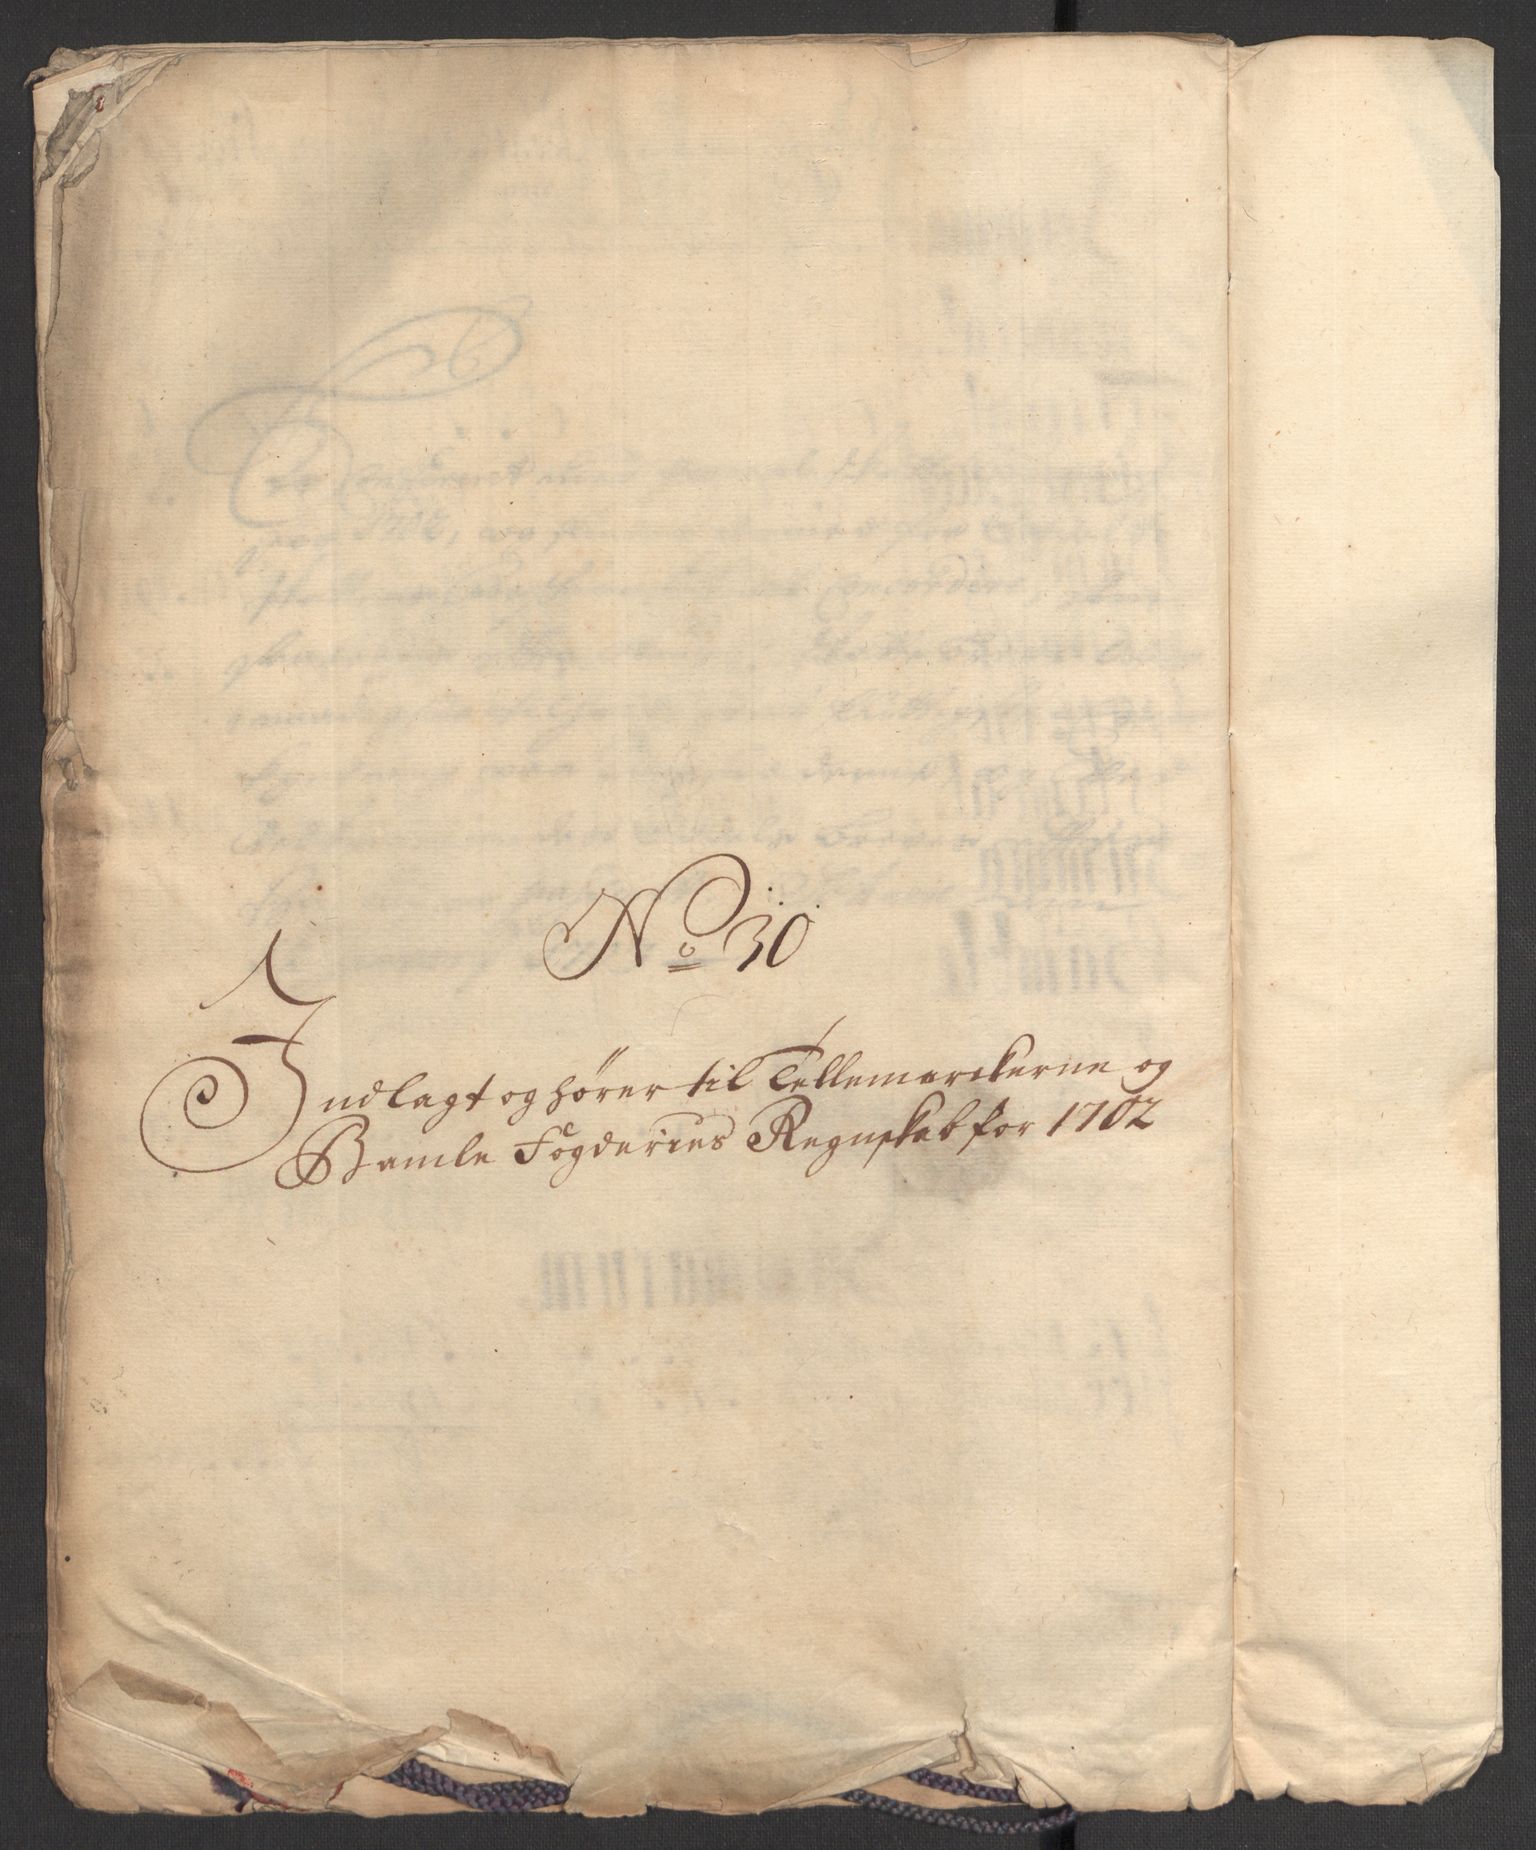 No 30
Indlagt og hører til Tellemarckerne og
Bamle Fogderies Regnskab for 1702